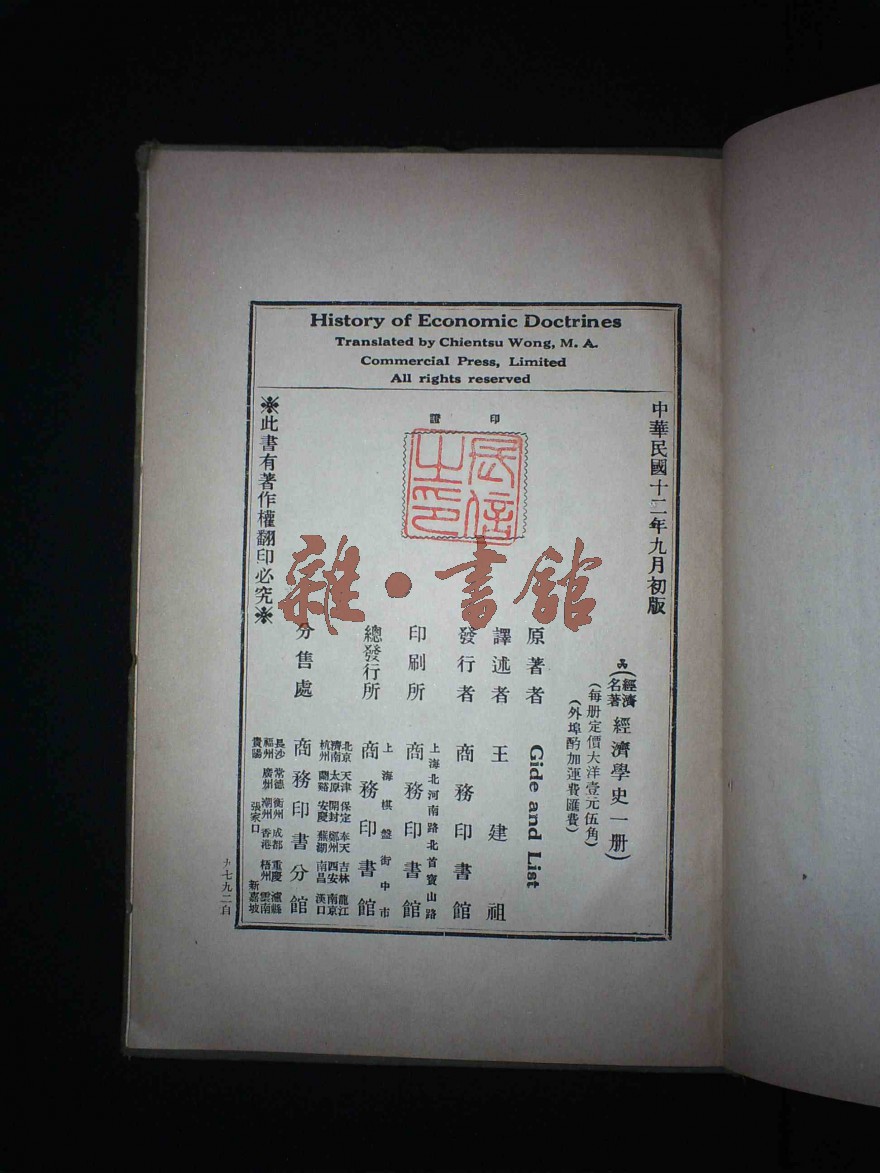 History of Economic Doctrines
Translated by Chientsu Wong, M. A.
Commercial Press, Limited
All rights reserved
中華民國十二年九月初版
(經濟名著 經濟學史一册)
(每册定價大洋壹元伍角)
(外埠酌加運費匯費)
原著者 Gide and List
譯述者 王建祖
發行者 商務印書館
上海北河南路北首寶山路
印刷所 商務印書館
上海棋盤街中市
總發行所 商務印書館
北京 天津 保定 奉天 吉林 龍江
濟南 太原 開封 鄭州 西安 南京
杭州 蘭谿 安慶 蕪湖 南昌 漢口
分售處 商務印書分館
長沙 常德 衡州 成都 重慶 瀘縣
福州 廣州 潮州 香港 梧州 雲南
貴陽 張家口 新嘉坡
※此書有著作權翻印必究※
印證
民信之印
雜·書館
九七九二自